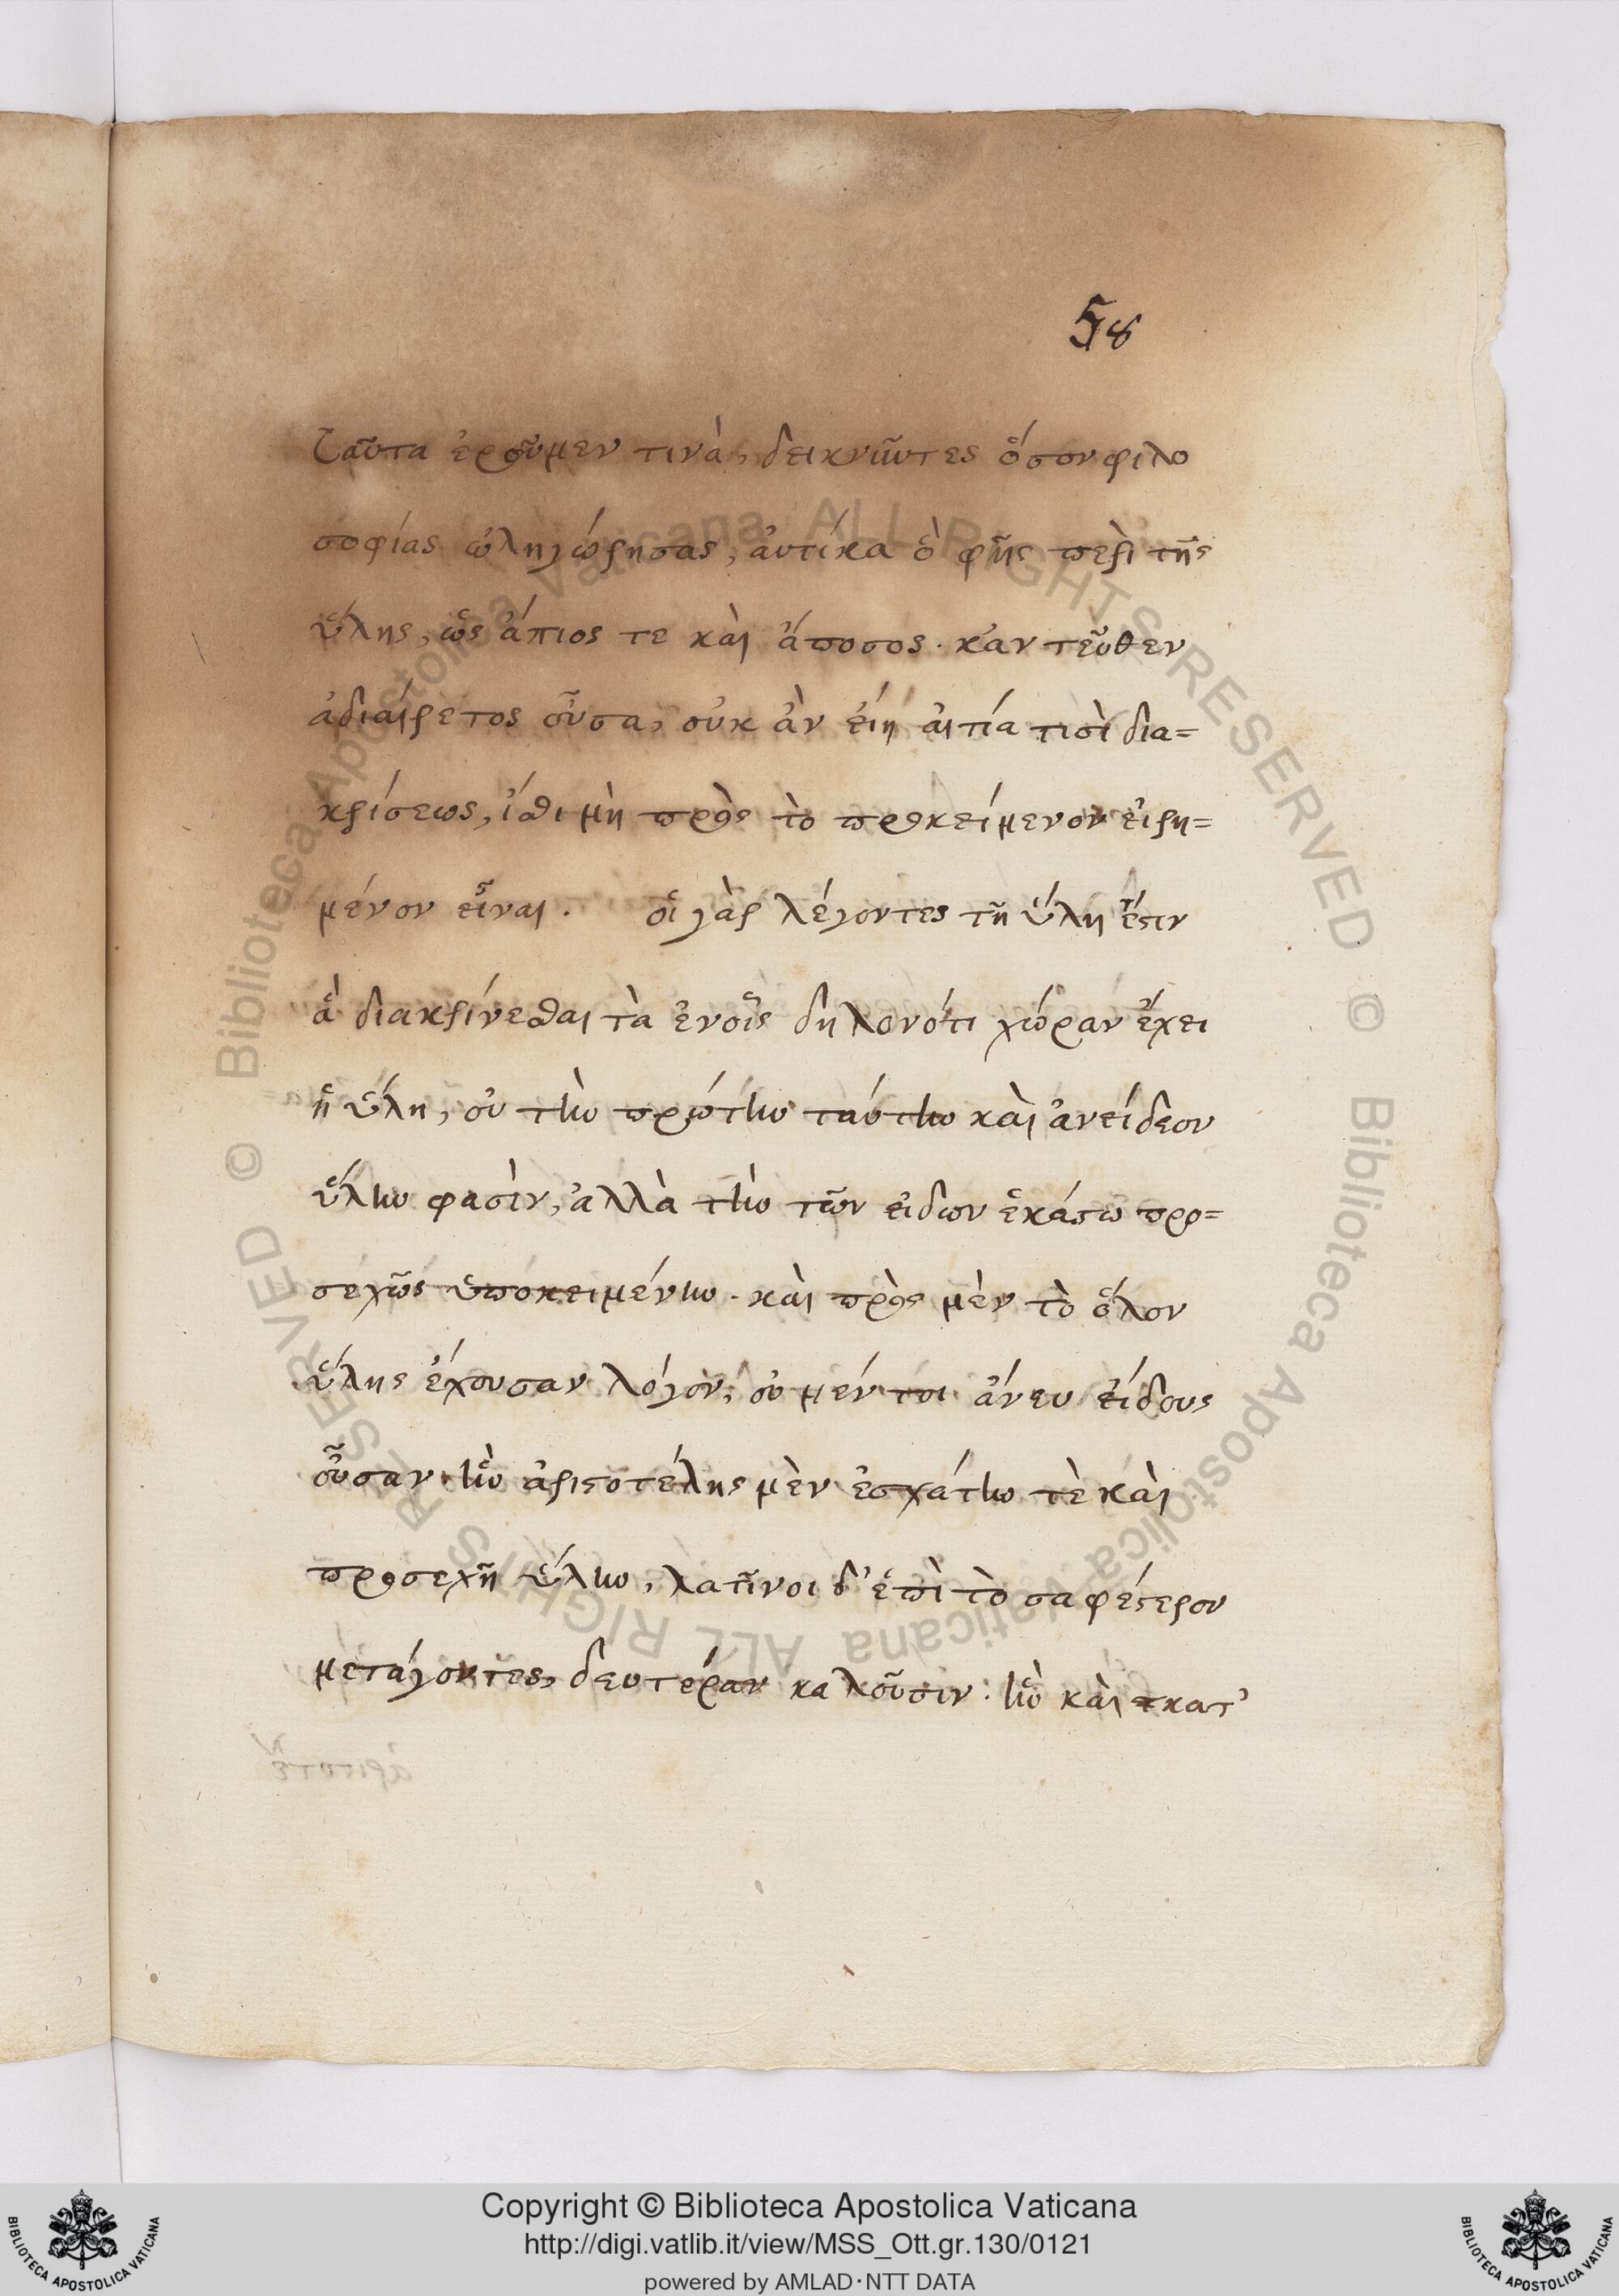 58
ταῦτα ἐροῦμεν τινὰ, δεικνῦντες ὅσον φιλο
σοφίας ὠλιγώρησας, ἀυτίκα ὃ φῂς περὶ τῆς
ὕλης, ὡς ἄπιος τε καὶ ἄποσος. κἀν τεῦθεν
ἀδιαίρετος οὖσα, οὐκ ἂν εἴη ἀιτία τισὶ δια=
κρίσεως, ἴσθι μὴ πρὸς τὸ προκείμενον εἰρη=
μένον εἶναι. οἱ γὰρ λέγοντες τῇ ὕλῃ ἔστιν
ἃ διακρίνεσθαι τὰ ἐνοῖς δηλονότι χώραν ἔχει
ἡ ὕλη, οὐ τὴν πρώτην ταύτην καὶ ἀνείδεον
ὕλην φασὶν, ἀλλὰ τὴν τῶν ειδων ἑκάστω προ=
σεχῶς ὑποκειμένην. καὶ πρὸς μὲν τὸ ὅλον
ὕλης ἔχουσαν λόγον, οὐ μέν τοι ἄνευ εἴδους
οὖσαν. ἣν ἀριστοτέλης μὲν ἐσχάτην τὲ καὶ
προσεχῆ ὕλην, λατῖνοι δ' ἐπὶ τὸ σαφέστερον
μετάγοντες, δευτέραν καλοῦσιν. ἣν καὶ κατ'
Copyright © Biblioteca Apostolica Vaticana
http://digi.vatlib.it/view/MSS_Ott.gr.130/0121
powered by AMLAD·NTT DATA
BIBLIOTECA APOSTOLICA VATICANA
BIBLIOTECA APOSTOLICA VATICANA
© Biblioteca Apostolica Vaticana ALL RIGHTS RESERVED
© Biblioteca Apostolica Vaticana ALL RIGHTS RESERVED